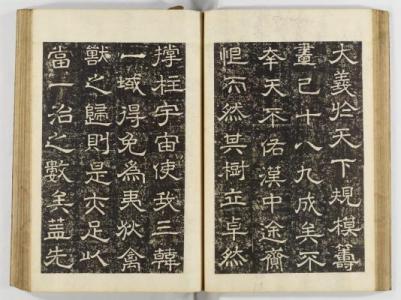 大義於天下規模籌
畫已十八九成矣不
幸天不佑漢中途
而然其樹立卓然
撐柱宇宙使我三韓
一域得免為夷狄禽
獸之歸則是亦足以
當一治之數矣蓋先